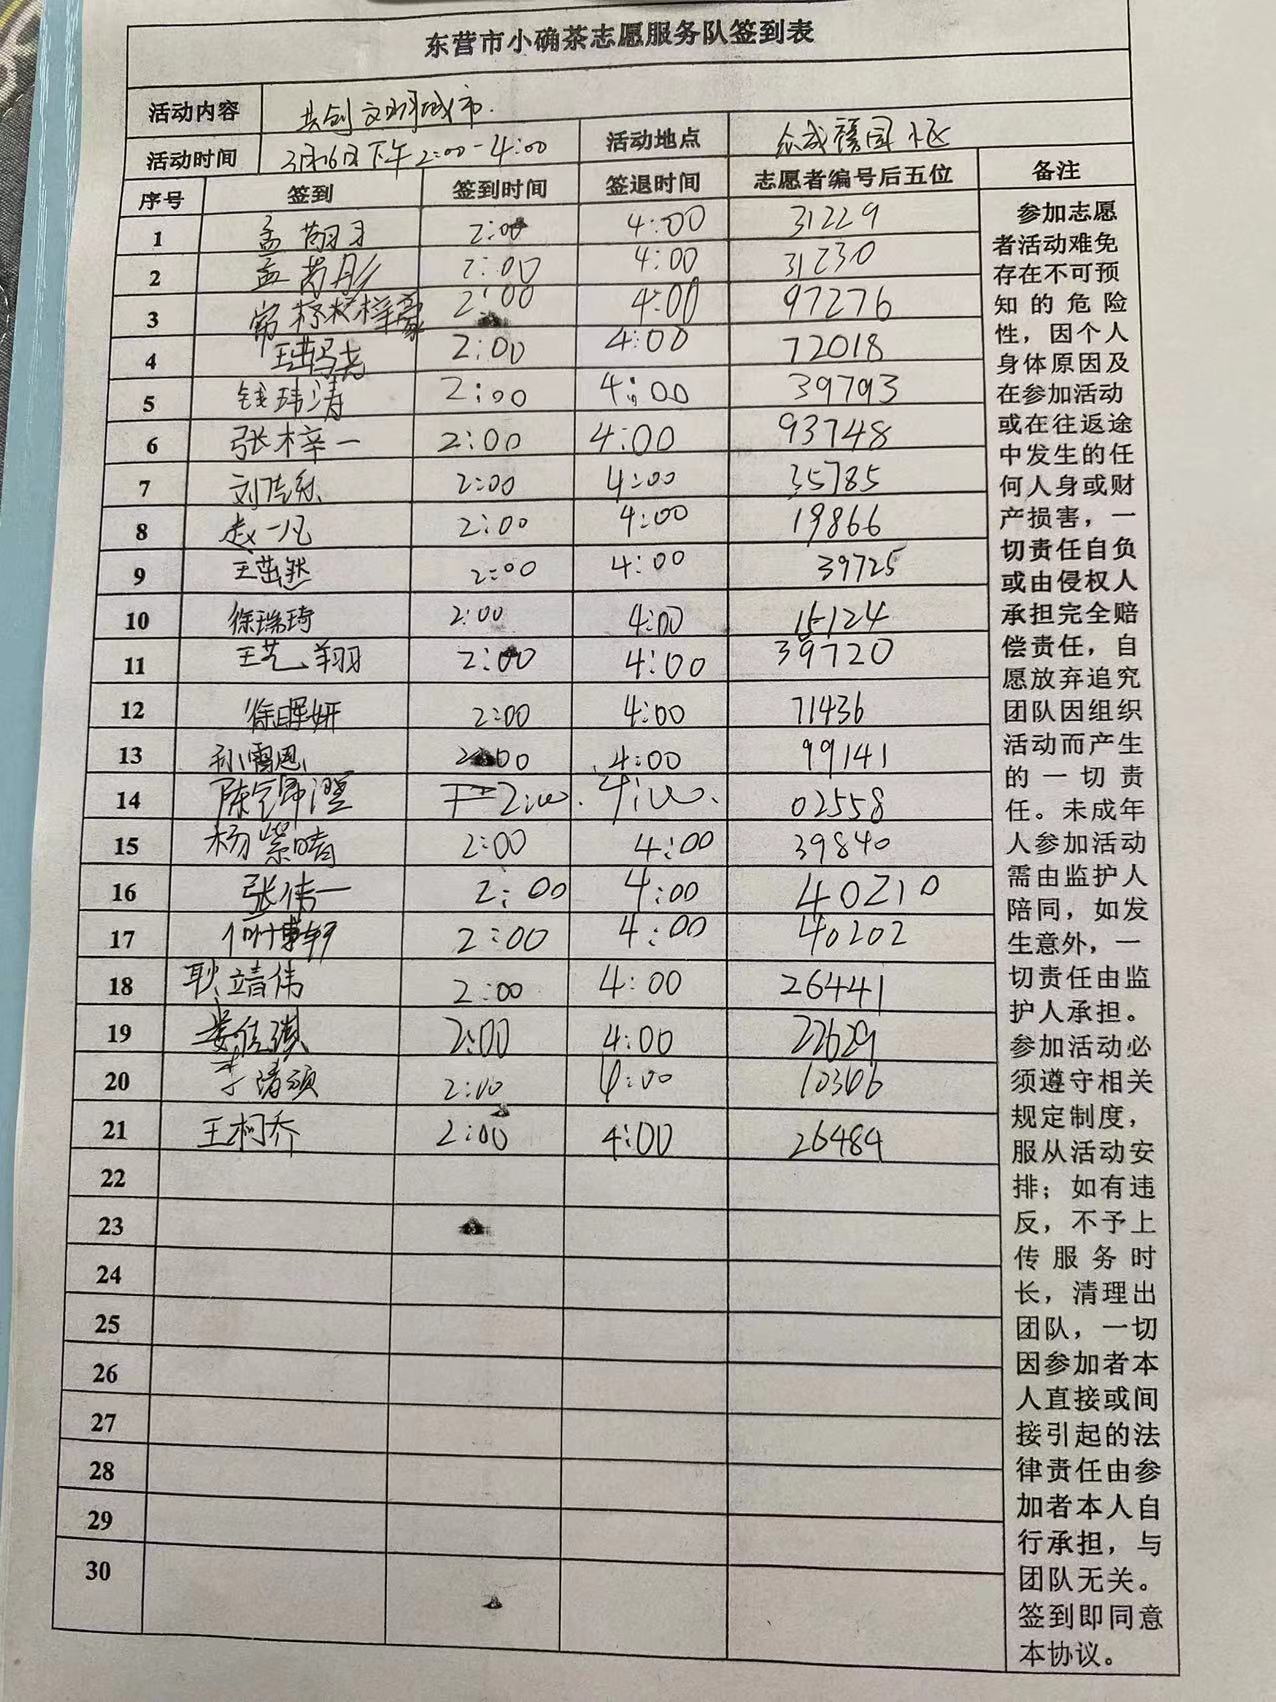 东营市小确茶志愿服务队签到表
活动内容 共创文明城市.
活动时间 3月16日下午2:00-4:00 活动地点 众成穗园小区
序号 签到 签到时间 签退时间 志愿者编号后五位 备注
1 孟 2:00 4:00 31229
2 孟芮彤 2:00 4:00 31230
3 常 梓豪 2:00 4:00 97276
4 王 2:00 4:00 72018
5 钱玮涛 2:00 4:00 39793
6 张梓一 2:00 4:00 93748
7 刘 2:00 4:00 35785
8 赵一凡 2:00 4:00 19866
9 王茁然 2:00 4:00 39725
10 徐瑞琦 2:00 4:00 15124
11 王艺翔 2:00 4:00 39720
12 徐晖妍 2:00 4:00 71436
13 孙雪恩 2:00 4:00 99141
14 陈 澄 下午2:00. 4:00. 02558
15 杨紫晴 2:00 4:00 39840
16 张倩一 2:00 4:00 40210
17 何博轩 2:00 4:00 40202
18 耿靖伟 2:00 4:00 26441
19 娄佳琪 2:00 4:00 22629
20 李清硕 2:00 4:00 10306
21 王柯乔 2:00 4:00 26484
22
23
24
25
26
27
28
29
30
参加志愿
者活动难免
存在不可预
知的危险
性，因个人
身体原因及
在参加活动
或在往返途
中发生的任
何人身或财
产损害，一
切责任自负
或由侵权人
承担完全赔
偿责任，自
愿放弃追究
团队因组织
活动而产生
的一切责
任。未成年
人参加活动
需由监护人
陪同，如发
生意外，一
切责任由监
护人承担。
参加活动必
须遵守相关
规定制度，
服从活动安
排；如有违
反，不予上
传服务时
长，清理出
团队，一切
因参加者本
人直接或间
接引起的法
律责任由参
加者本人自
行承担，与
团队无关。
签到即同意
本协议。